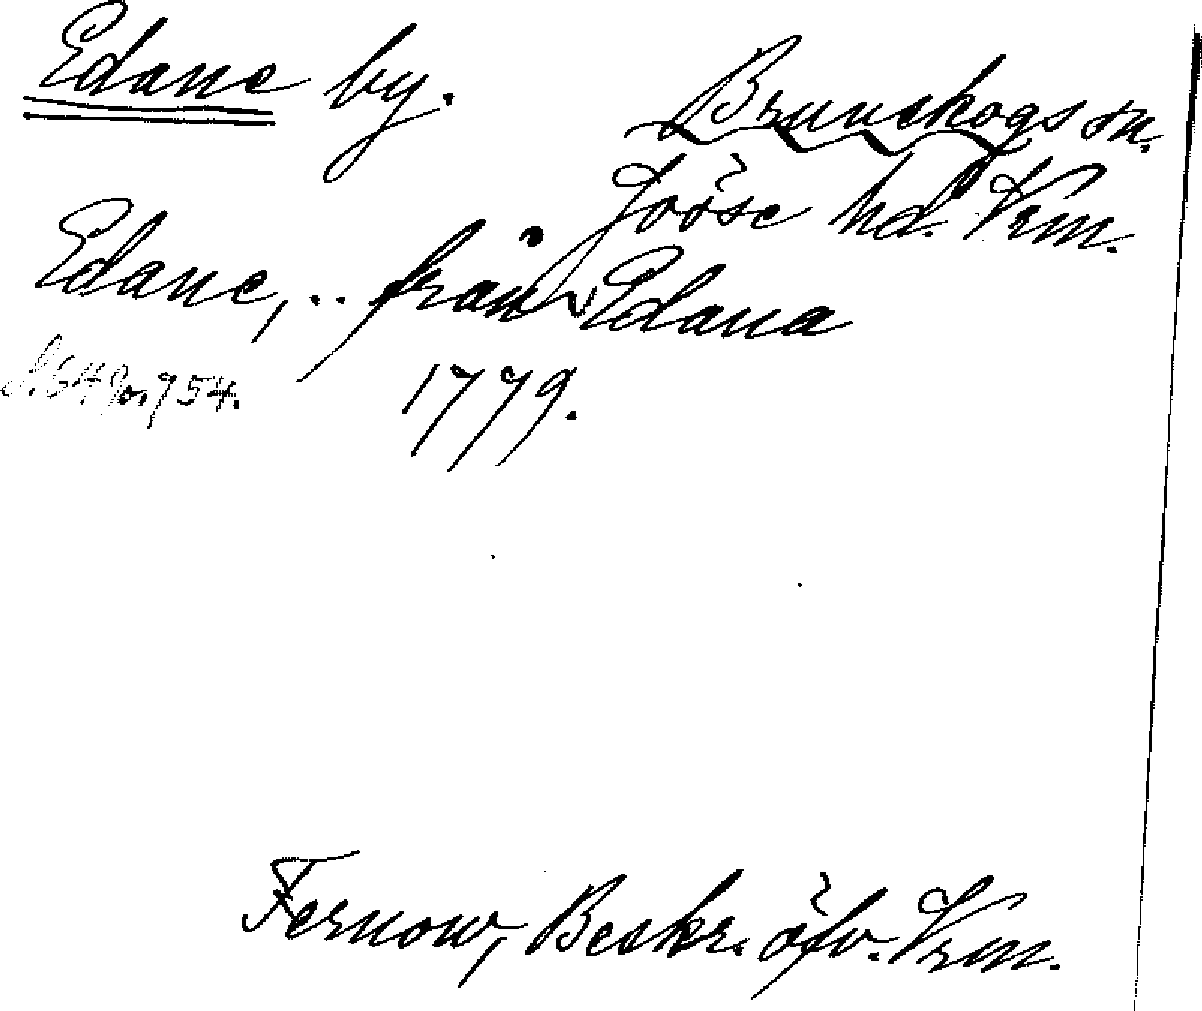 Edane by.
Brunskogs sn.
Jösse hd. Vrm.
Edane, .. från Edana
1779.
Fernow, Beskr. öfv. Vrm.